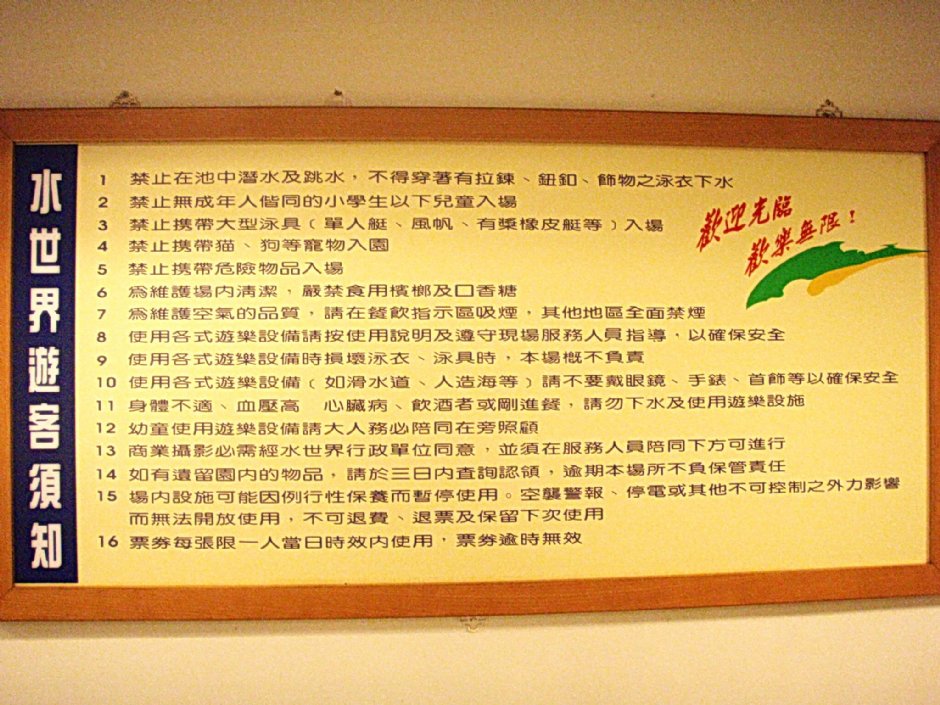 水世界遊客須知
1 禁止在池中潛水及跳水，不得穿著有拉鍊、鈕釦、飾物之泳衣下水
2 禁止無成年人偕同的小學生以下兒童入場
3 禁止携帶大型泳具（單人艇、風帆、有槳橡皮艇等）入場
4 禁止携帶猫、狗等寵物入園
5 禁止携帶危險物品入場
6 為維護場内清潔，嚴禁食用檳榔及口香糖
7 為維護空氣的品質，請在餐飲指示區吸煙，其他地區全面禁煙
8 使用各式遊樂設備請按使用說明及遵守現場服務人員指導，以確保安全
9 使用各式遊樂設備時損壞泳衣、泳具時，本場概不負責
10 使用各式遊樂設備（如滑水道、人造海等）請不要戴眼鏡、手錶、首飾等以確保安全
11 身體不適、血壓高　心臟病、飲酒者或剛進餐，請勿下水及使用遊樂設施
12 幼童使用遊樂設備請大人務必陪同在旁照顧
13 商業攝影必需經水世界行政單位同意，並須在服務人員陪同下方可進行
14 如有遺留園内的物品，請於三日内查詢認領，逾期本場所不負保管責任
15 場内設施可能因例行性保養而暫停使用。空襲警報、停電或其他不可控制之外力影響
而無法開放使用，不可退費、退票及保留下次使用
16 票券每張限一人當日時效内使用，票券逾時無效
歡迎光臨
歡樂無限！